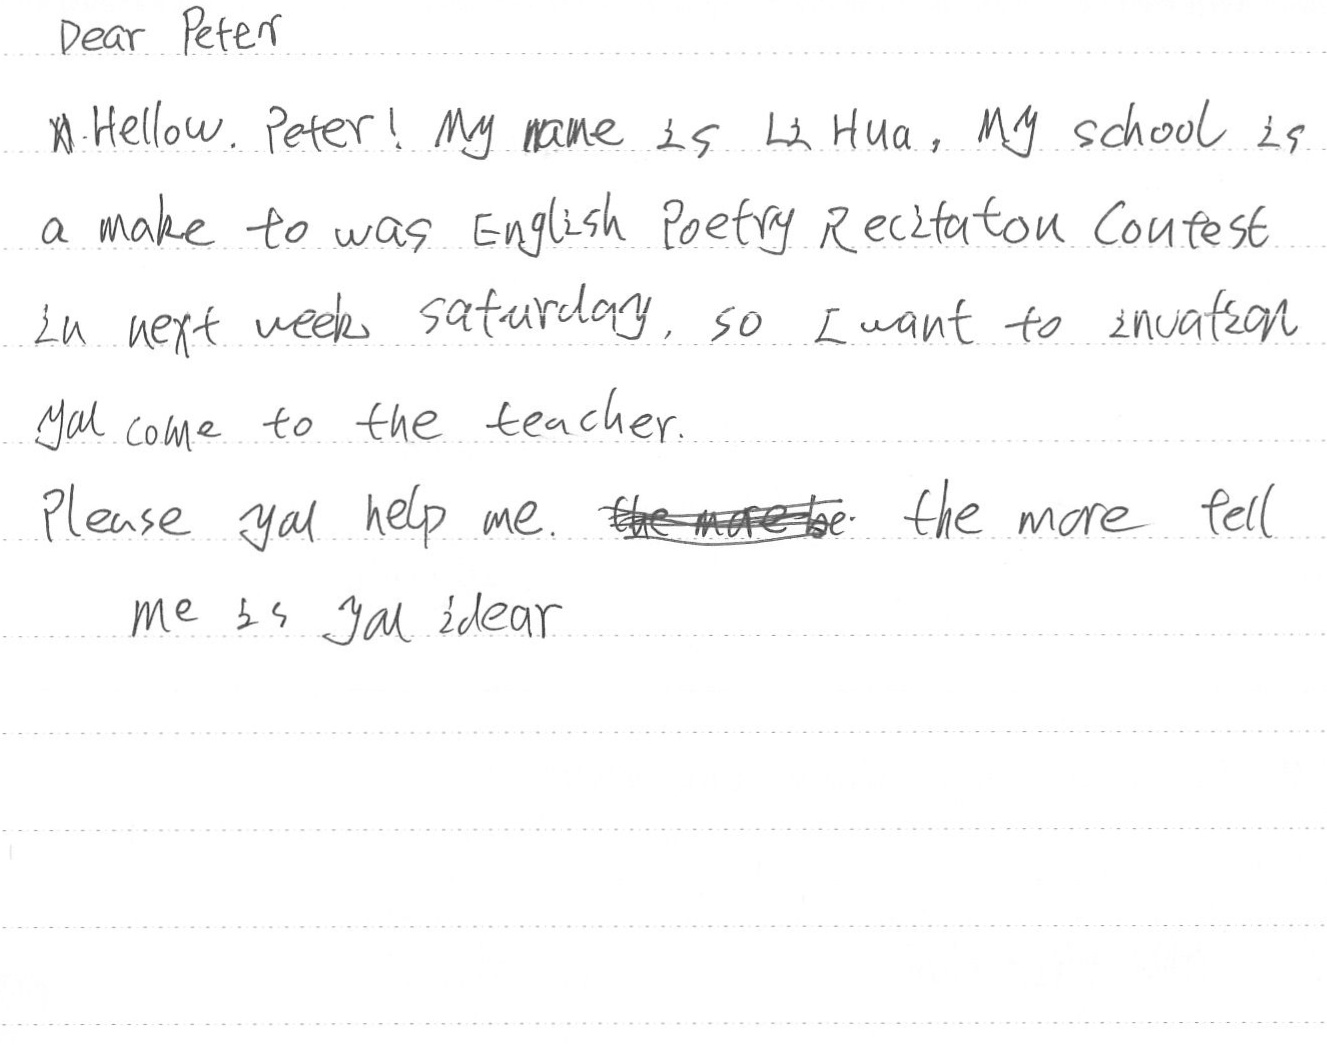 Dear Peter
Hellow. Peter! My name is Li Hua, My school is
a make to was English Poetry Recitaton Contest
in next week saturday, so I want to invation
yal come to the teacher.
Please yal help me. the more tell
me is yal idear